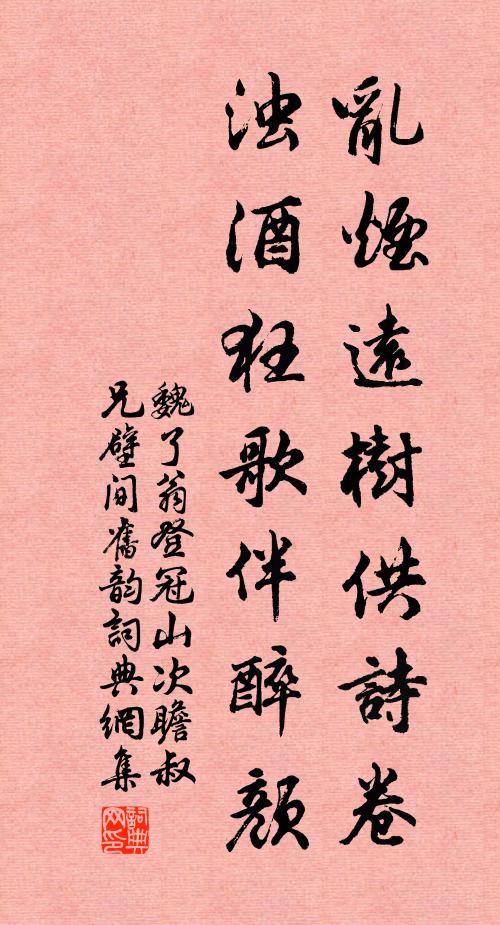 亂煙遠樹供詩卷
浊酒狂歌伴醉顏
魏了翁登冠山次瞻叔
兄壁间舊韵詞典網集
詞典网印